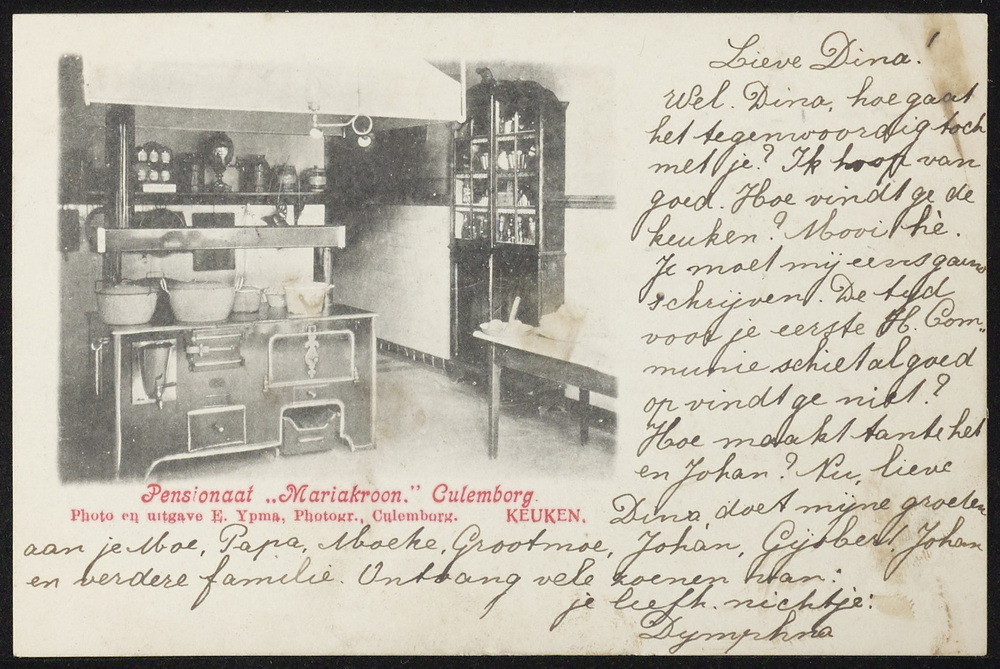 Lieve Dina!
Wel. Dina, hoe gaat
het tegenwoordig toch
met je? Ik hoop van
goed. Hoe vindt ge de
keuken? Mooi hè.
Je moet mij eens gauw
schrijven. De tijd
voor je eerste H. Com„
munie schiet al goed
op vindt ge niet?
Hoe maakt tante het
en Johan? Nu, lieve
Dina, doet mijne groeten
aan je Moe, Papa, Moeke, Grootmoe, Johan, Gijsbert, Johan
en verdere familie. Ontvang vele zoenen van:
je liefh. nichtje:
Dymphna
Pensionaat „Mariakroon.” Culemborg.
Photo en uitgave E. Ypma, Photogr., Culemborg. KEUKEN.